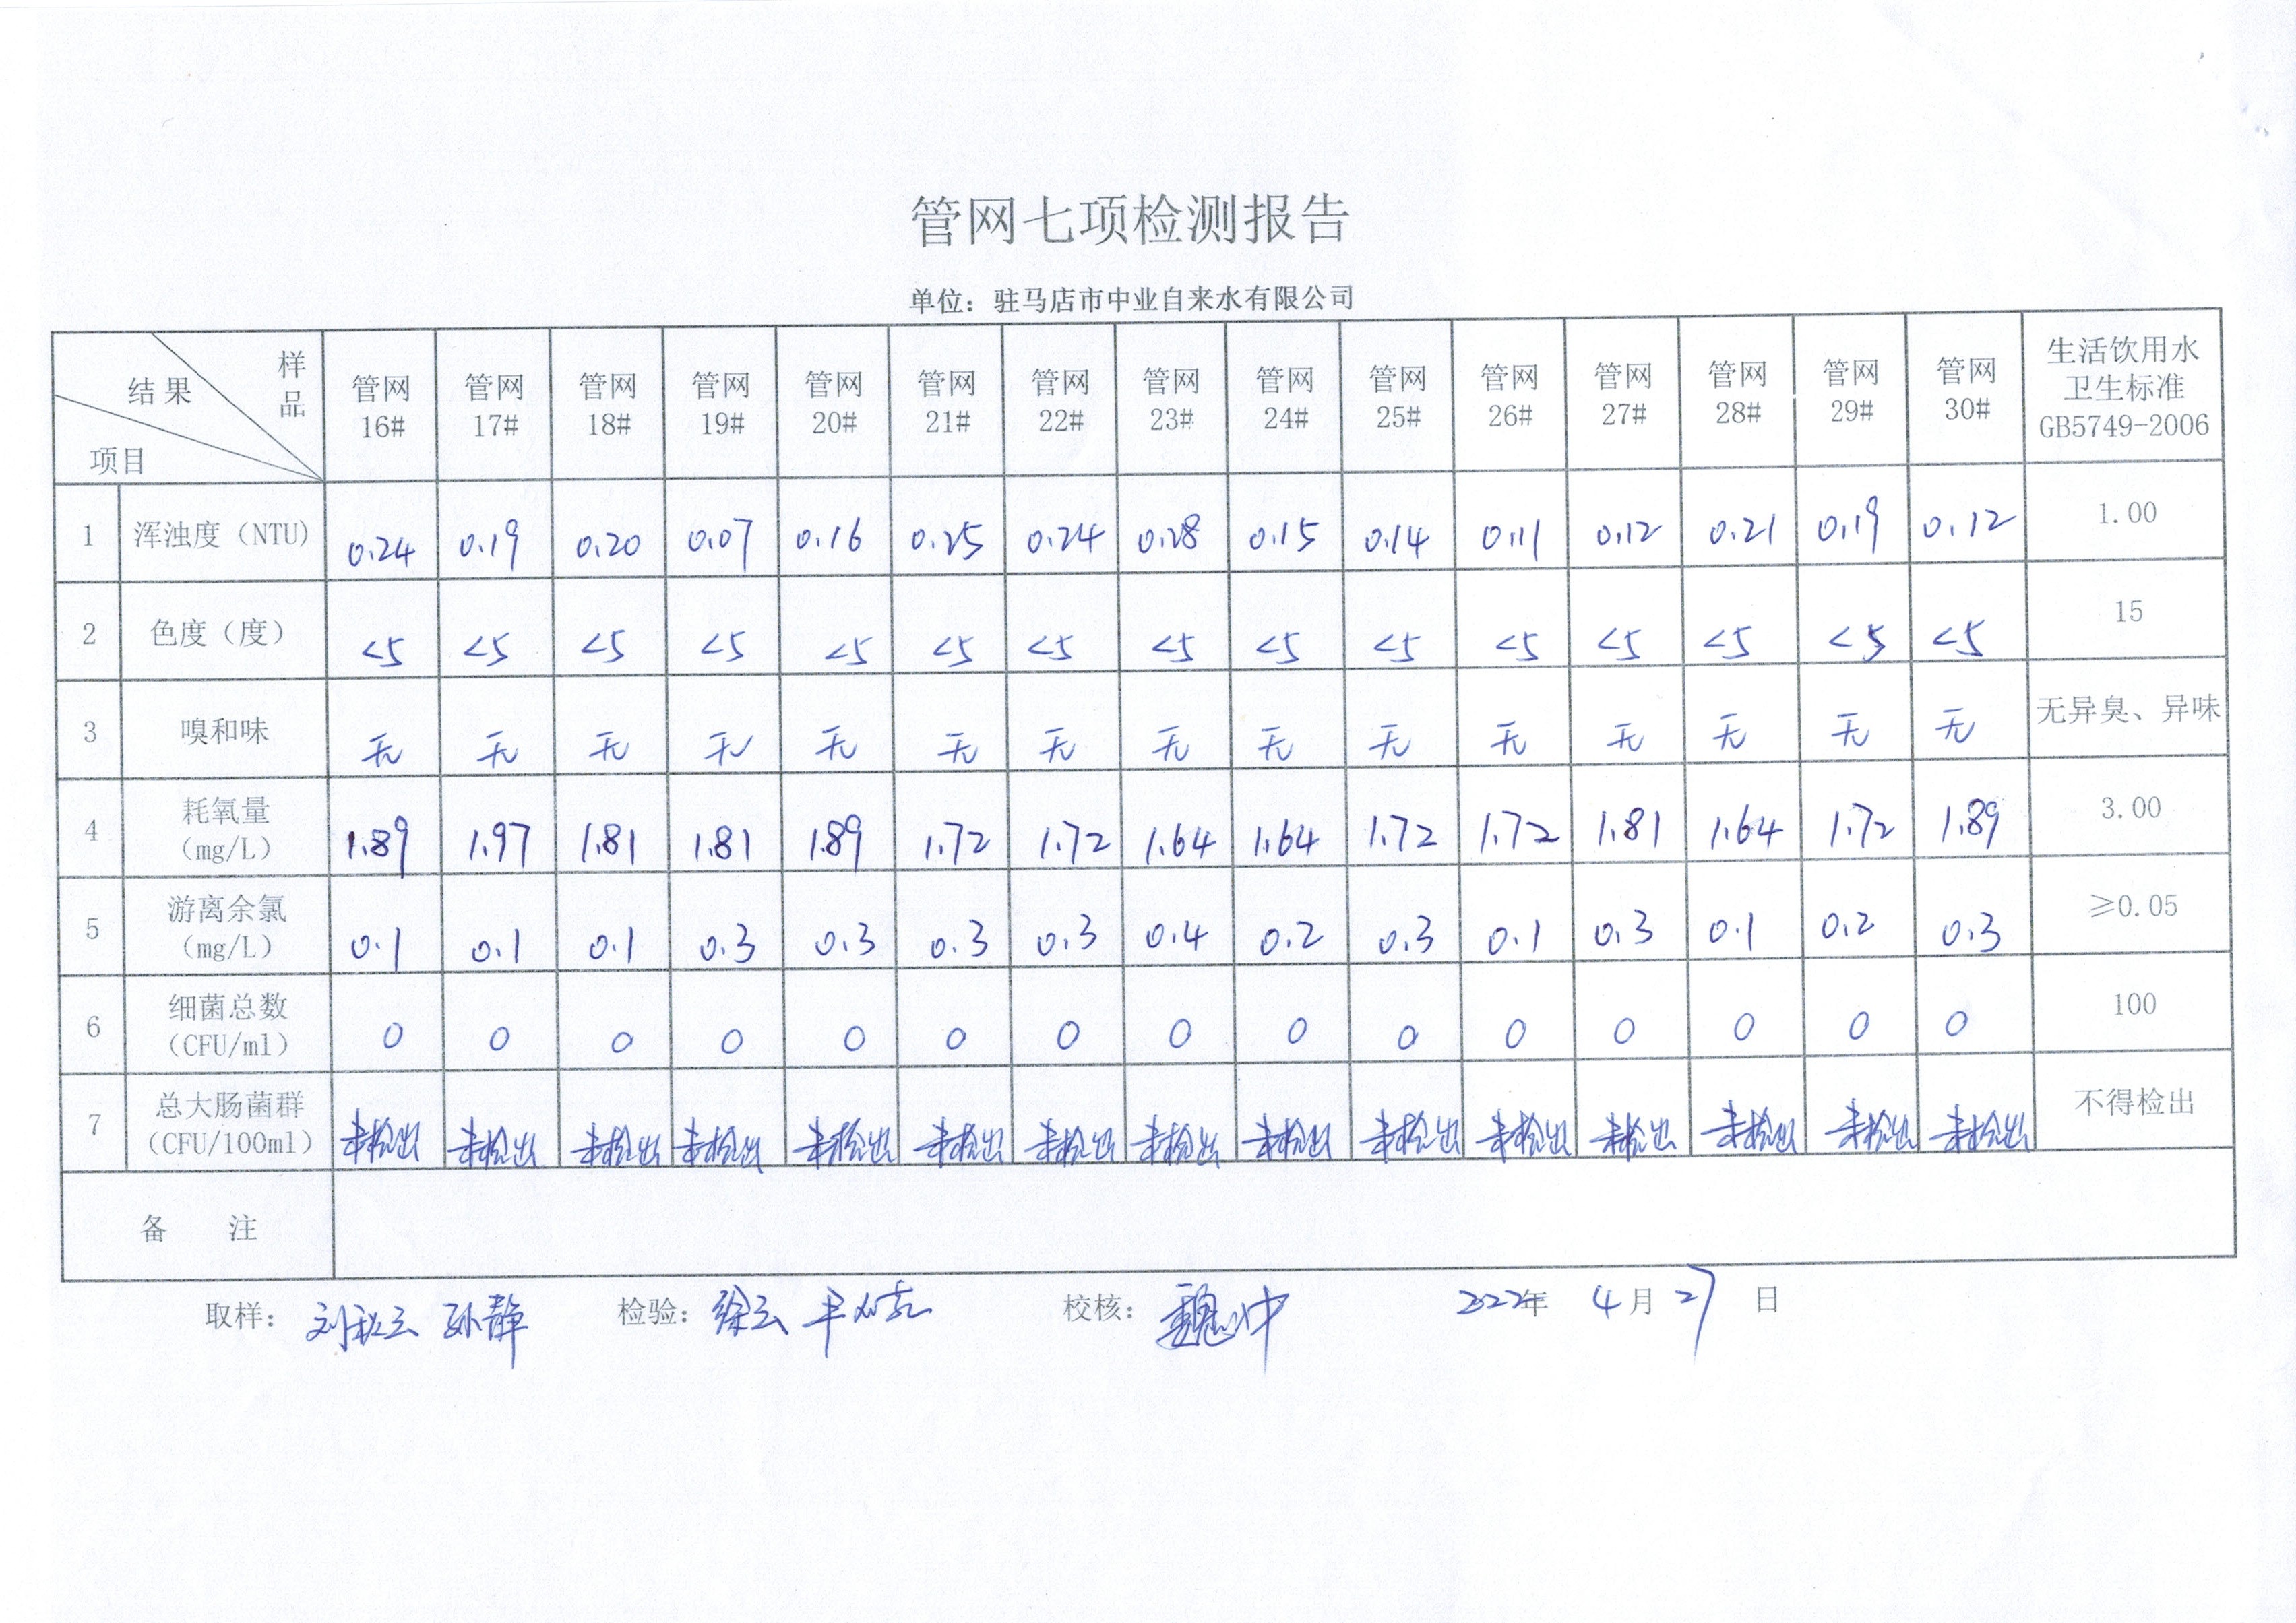 管网七项检测报告
单位：驻马店市中业自来水有限公司
结果 样品 项目 管网16# 管网17# 管网18# 管网19# 管网20# 管网21# 管网22# 管网23# 管网24# 管网25# 管网26# 管网27# 管网28# 管网29# 管网30# 生活饮用水卫生标准GB5749-2006
1 浑浊度（NTU) 0.24 0.19 0.20 0.07 0.16 0.25 0.24 0.28 0.15 0.14 0.11 0.12 0.21 0.19 0.12 1.00
2 色度（度） <5 <5 <5 <5 <5 <5 <5 <5 <5 <5 <5 <5 <5 <5 <5 15
3 嗅和味 无 无 无 无 无 无 无 无 无 无 无 无 无 无 无 无异臭、异味
4 耗氧量（mg/L） 1.89 1.97 1.81 1.81 1.89 1.72 1.72 1.64 1.64 1.72 1.72 1.81 1.64 1.72 1.89 3.00
5 游离余氯（mg/L） 0.1 0.1 0.1 0.3 0.3 0.3 0.3 0.4 0.2 0.3 0.1 0.3 0.1 0.2 0.3 ≥0.05
6 细菌总数（CFU/ml） 0 0 0 0 0 0 0 0 0 0 0 0 0 0 0 100
7 总大肠菌群（CFU/100ml） 未检出 未检出 未检出 未检出 未检出 未检出 未检出 未检出 未检出 未检出 未检出 未检出 未检出 未检出 未检出 不得检出
备 注
取样： 孙静 检验： 徐云 校核： 2022年 4月 27 日